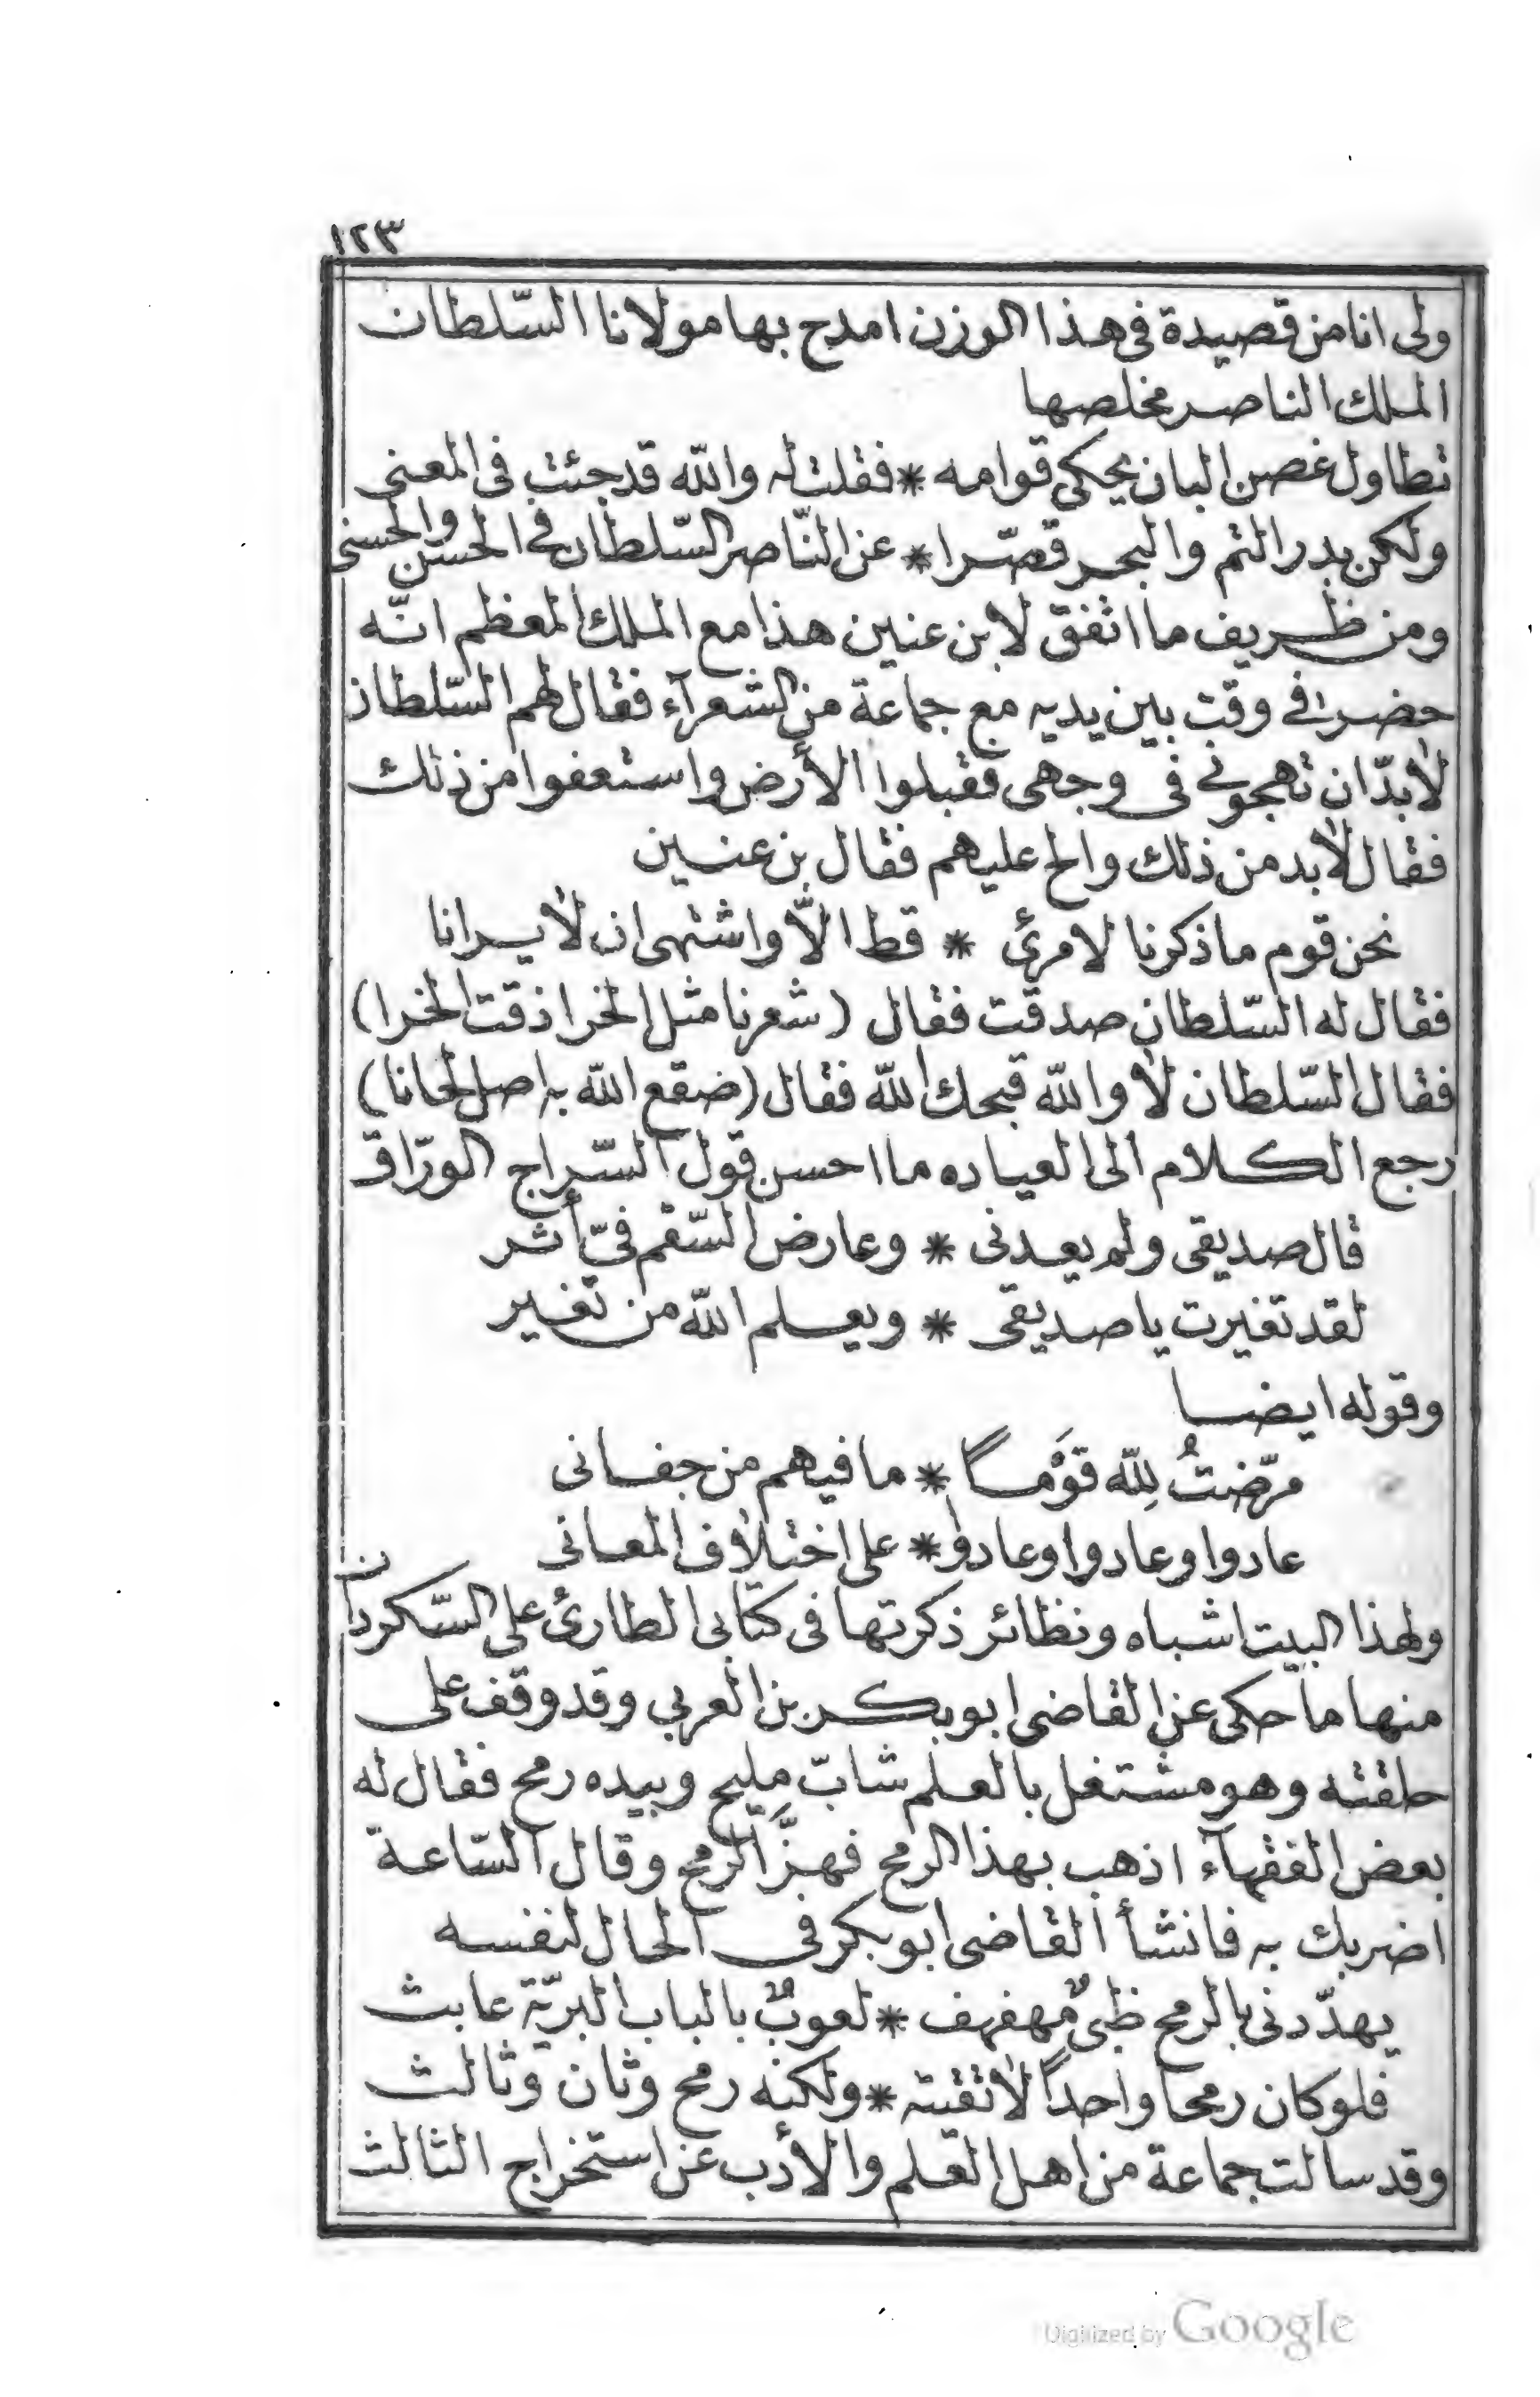 ١٢٣
ولى انا من قصيدة فى هذا الوزن امدح بها مولانا السّلطان
الملك الناصر مخلصها
تطاول غصن البان يحكى قوامه * فقلت له والله قد جئت فى المعنى
ولكن بدر التم والبحر قصّرا * عن النّاصر السّلطان فى الحسن والحسنى
ومن ظريف ما اتفق لابن عنين هذا مع الملك المعظم انّه
حضر فى وقت بين يديه مع جماعة من الشعرآء فقال لهم السّلطان
لابدّ ان تهجونى فى وجهى فقبلوا الأرض واستعفوا من ذلك
فقال لابد من ذلك والح عليهم فقال بن عنين
نحن قوم ما ذكرنا لامرئ * قط الاّ واشتهى ان لا يرانا
فقال له السّلطان صدقت فقال (شعرنا مثل الخرا ذقت الخرا)
فقال السّلطان لا والله قبحك الله فقال (ضقع الله به اصل لحانا)
رجع الكلام الى العياده ما احسن قول السّراج الورّاق
قال صديقى ولم يعدنى * وعارض السّقم فىّ أثر
لقد تغيرت يا صديقى * ويعلم الله من تغير
وقوله ايضا
مرّضتُ لِلّه قوَما * ما فيهم من جفانى
عادوا وعادوا وعادوا * على اختلاف المعانى
ولهذا البيت اشباه ونظائر ذكرتها فى كتابى الطارئ على السّكردان
منها ما حكى عن القاضى ابو بكر بن العربي وقد وقف على
حلقته وهو مشتغل بالعلم شابّ مليح وبيده رمح فقال له
بعض الفقهآء اذهب بهذا الرمح فهزَّ الرمح وقال السّاعة
اضربك به فانشأ القاضى ابو بكر فى الحال لنفسه
يهدّدنى بالرمح ظبىٌ مهفهف * لعوبٌ بالباب البريّة عابث
فلو كان رمحا واحداً لاتقيته * ولكنه رمح وثان وثالث
وقد سالت جماعة من اهل العلم والأدب عن استخراج الثالث
Digitized by Google